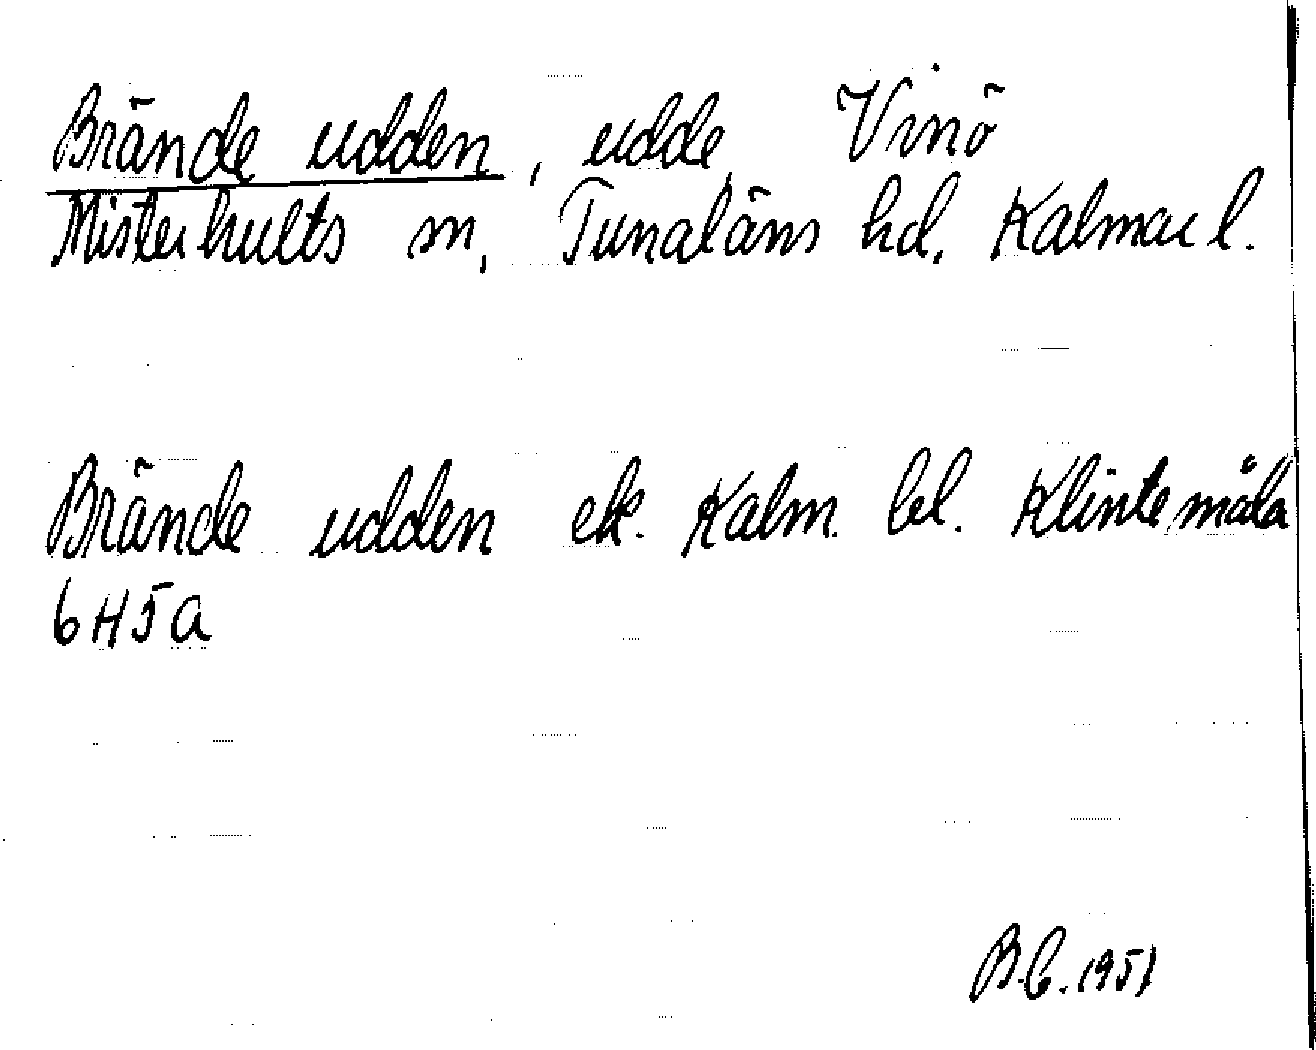 Brände udden, udde, Vinö
Misterhults sn, Tunaläns hd. Kalmar l.
Brände udden ek. Kalm. bl. Klintemåla
6H5a
B.C. 1951